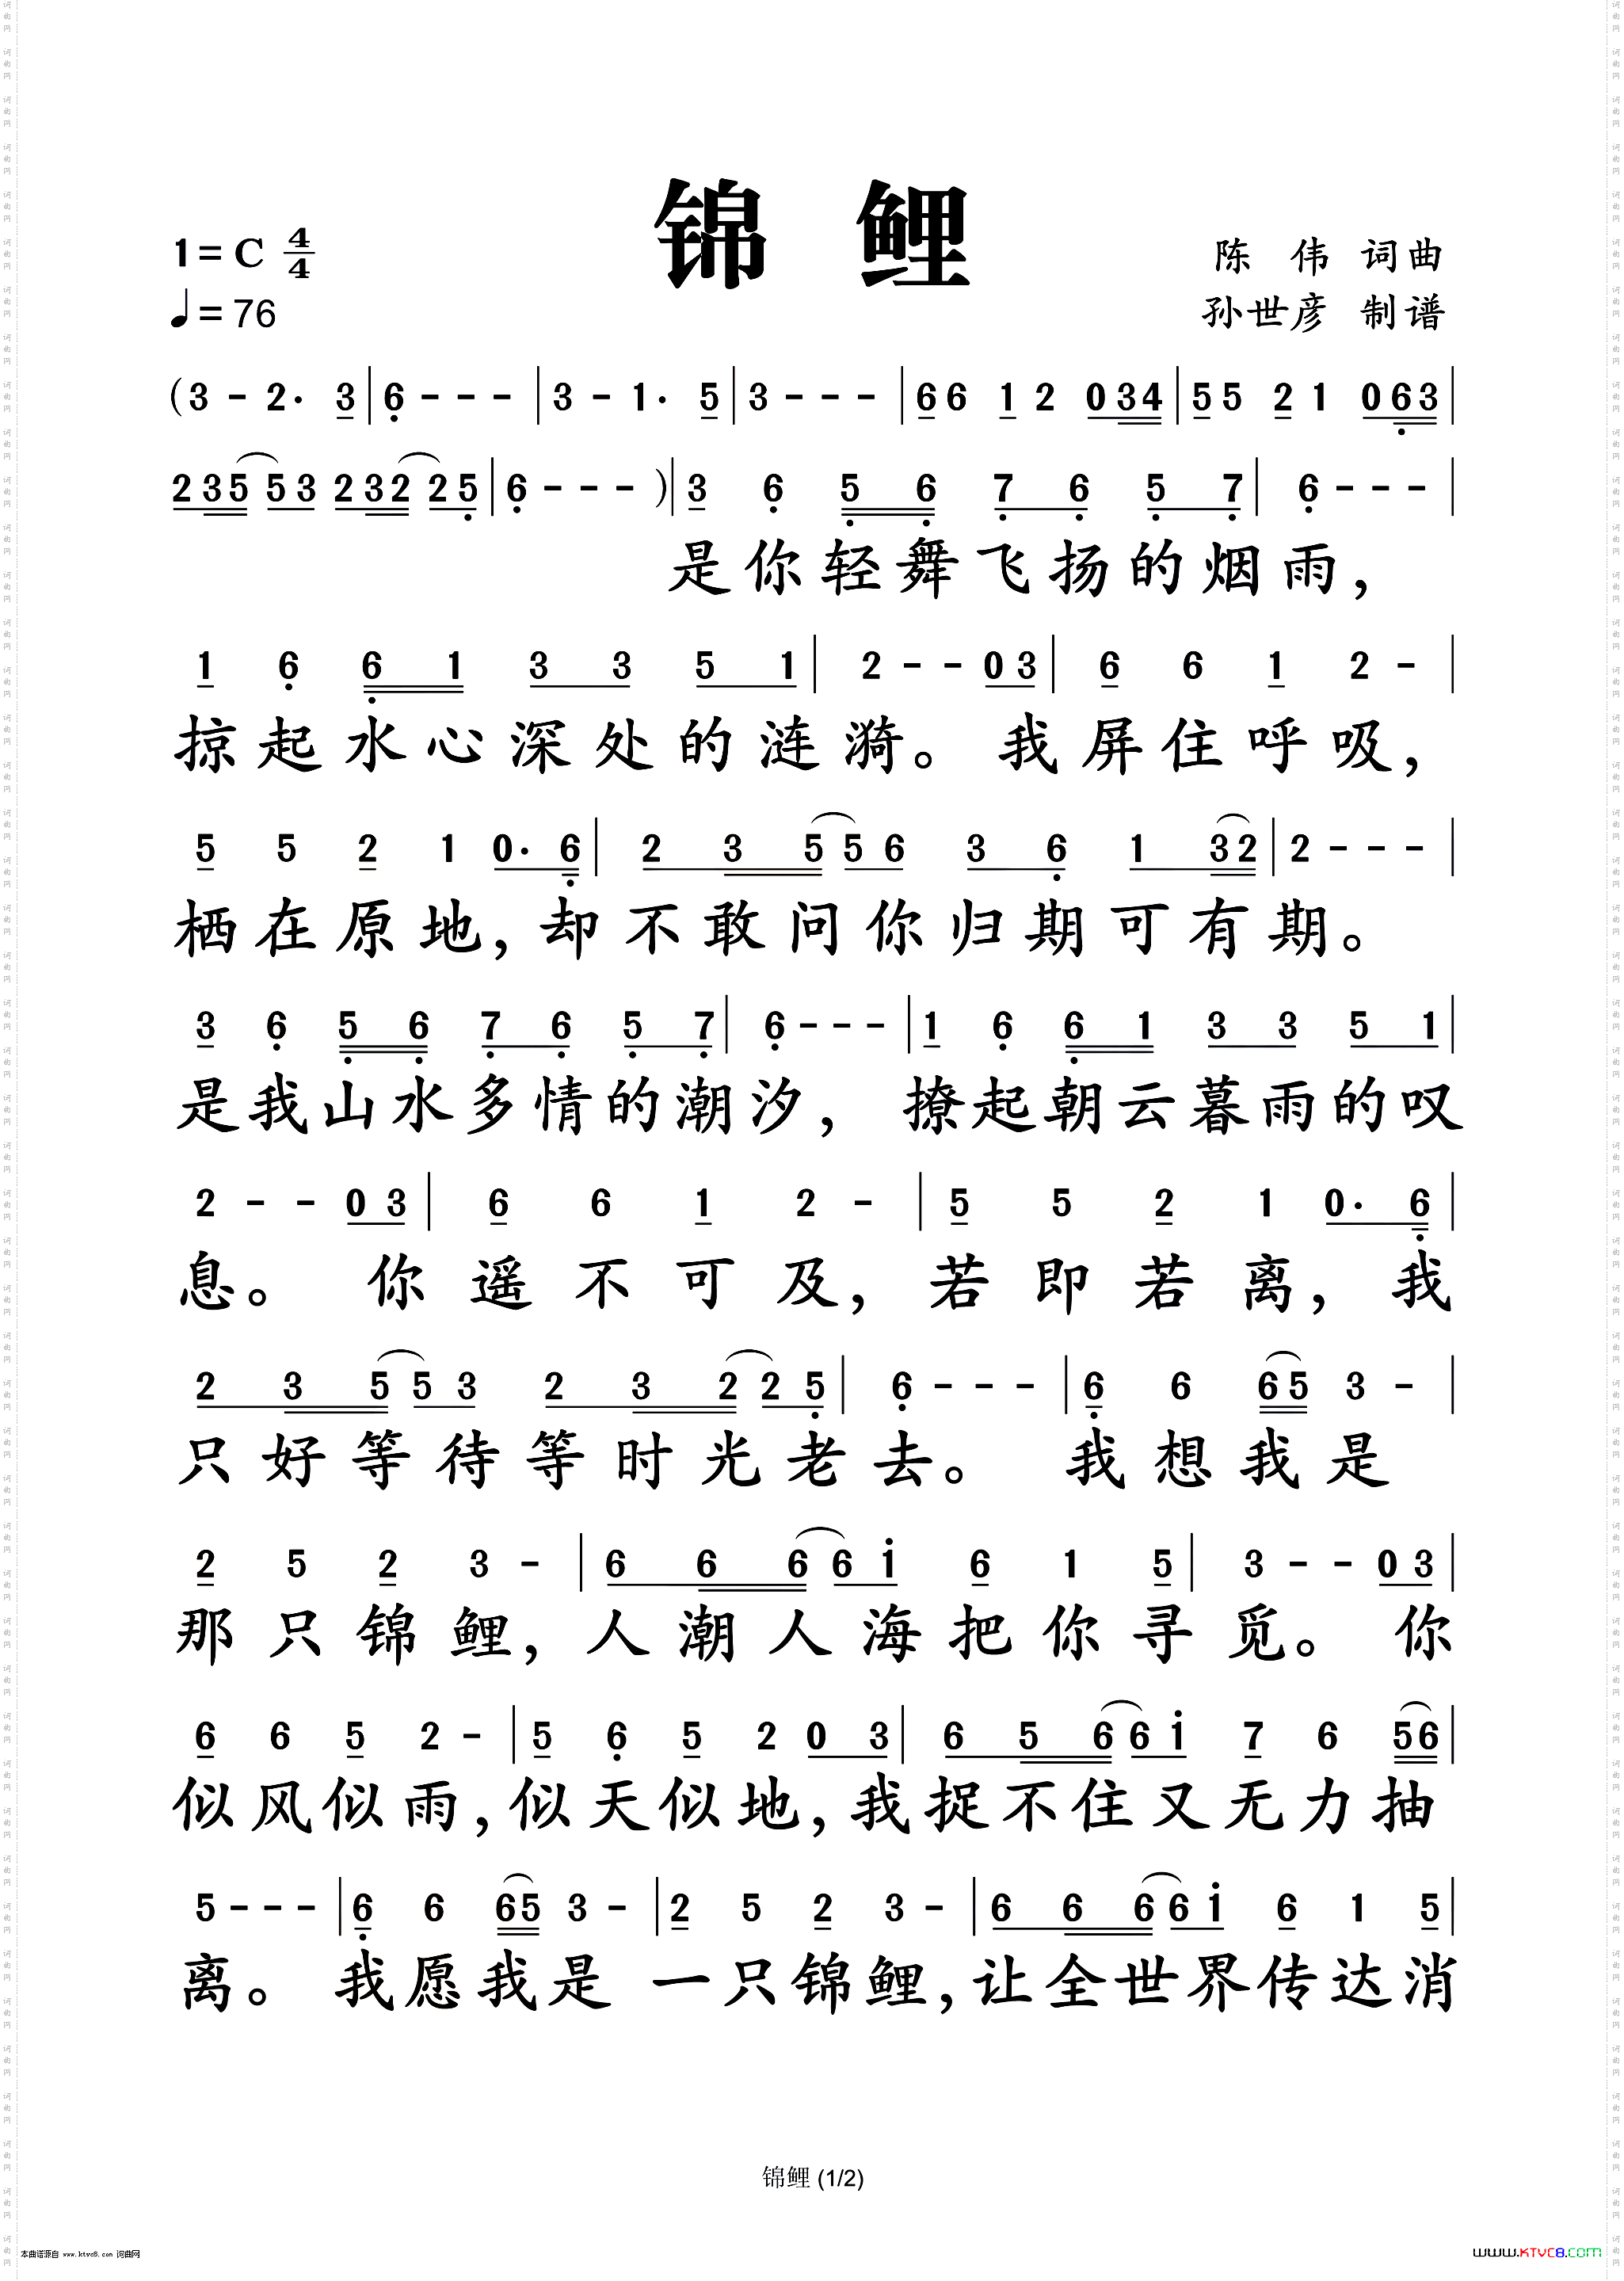 锦 鲤
1=C 4/4
♩=76
陈 伟 词曲
孙世彦 制谱
(3 - 2· 3 | 6 - - - | 3 - 1· 5 | 3 - - - | 6 6 1 2 0 3 4 | 5 5 2 1 0 6 3 |
2 3 5 5 3 2 3 2 2 5 | 6 - - - )| 3 6 5 6 7 6 5 7 | 6 - - - |
是你轻舞飞扬的烟雨，
1 6 6 1 3 3 5 1 | 2 - - 0 3 | 6 6 1 2 - |
掠起水心深处的涟漪。我屏住呼吸，
5 5 2 1 0· 6 | 2 3 5 5 6 3 6 1 3 2 | 2 - - - |
栖在原地，却不敢问你归期可有期。
3 6 5 6 7 6 5 7 | 6 - - - | 1 6 6 1 3 3 5 1 |
是我山水多情的潮汐，撩起朝云暮雨的叹
2 - - 0 3 | 6 6 1 2 - | 5 5 2 1 0· 6 |
息。你遥不可及，若即若离，我
2 3 5 5 3 2 3 2 2 5 | 6 - - - | 6 6 6 5 3 - |
只好等待等时光老去。我想我是
2 5 2 3 - | 6 6 6 6 i 6 1 5 | 3 - - 0 3 |
那只锦鲤，人潮人海把你寻觅。你
6 6 5 2 - | 5 6 5 2 0 3 | 6 5 6 6 i 7 6 5 6 |
似风似雨，似天似地，我捉不住又无力抽
5 - - - | 6 6 6 5 3 - | 2 5 2 3 - | 6 6 6 6 i 6 1 5 |
离。我愿我是一只锦鲤，让全世界传达消
锦鲤 (1/2)
本曲谱源自 www.ktvc8.com 词曲网
www.KTVC8.com